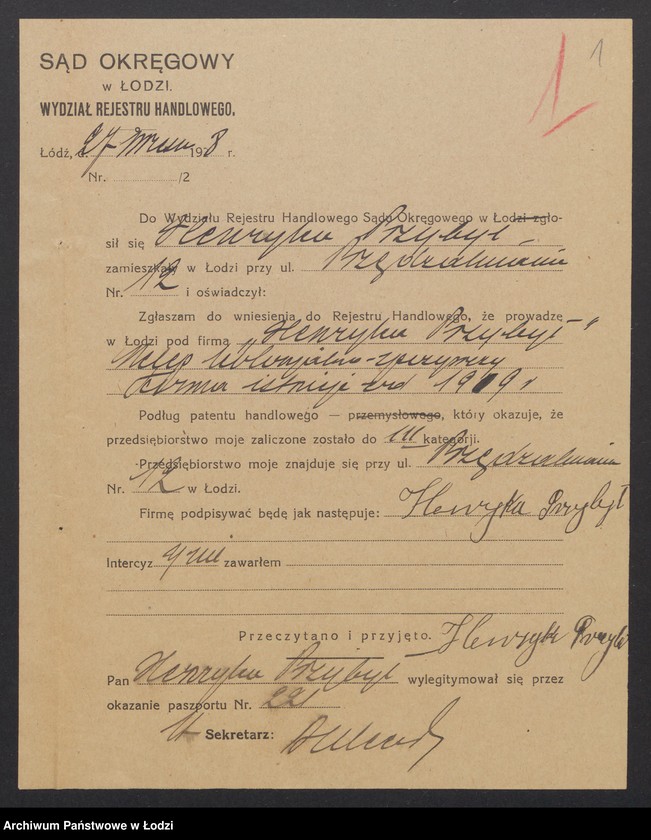 1 1
SĄD OKRĘGOWY
W ŁODZI.
WYDZIAŁ REJESTRU HANDLOWEGO.
Łódź, d. 27 192 8 r.
Nr. /2
Do Wydziału Rejestru Handlowego Sądu Okręgowego w Łodzi zgło-
sił się Henryka Przybył
zamieszkały w Łodzi przy ul. Przędzalniana
Nr. 12 i oświadczył:
Zgłaszam do wniesienia do Rejestru Handlowego, że prowadzę
w Łodzi pod firmą „Henryka Przybył"
sklep kolonjalno-spożywczy
Firma istnieje od 1909 r
Podług patentu handlowego — przemysłowego, który okazuje, że
przedsiębiorstwo moje zaliczone zostało do III kategorji.
Przedsiębiorstwo moje znajduje się przy ul. Przędzalniana
Nr. 12 w Łodzi.
Firmę podpisywać będę jak następuje: Henryka Przybył
Intercyz nie zawarłem
Przeczytano i przyjęto. Henryka Przybył
Pan Henryka Przybył wylegitymował się przez
okazanie paszportu Nr. 221
Sekretarz:
Archiwum Państwowe w Łodzi